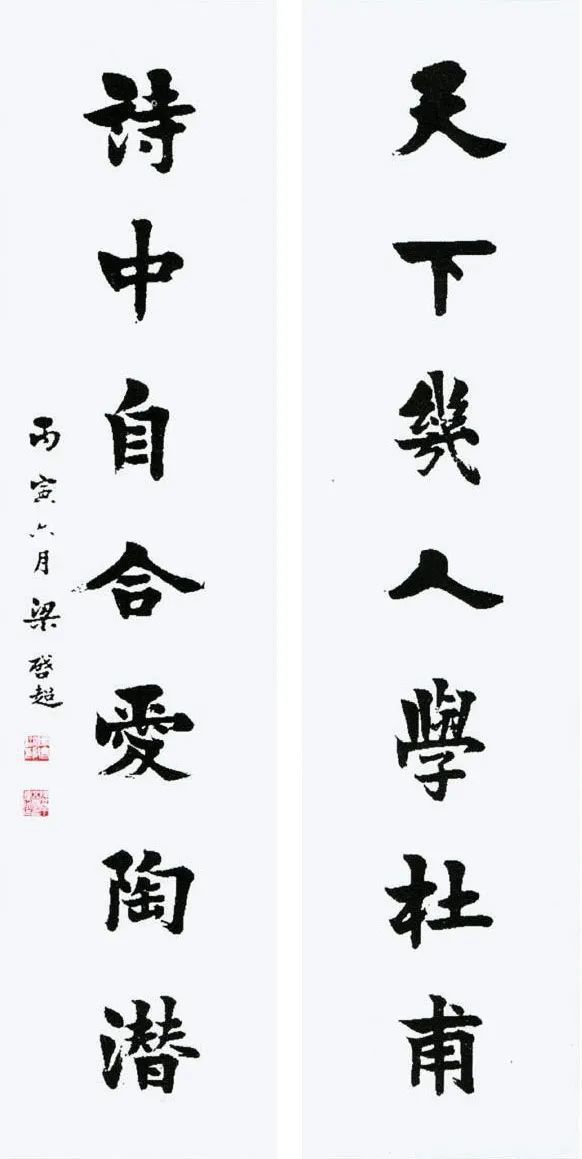 天下幾人學杜甫
詩中自合愛陶潛
丙寅六月 梁啓超